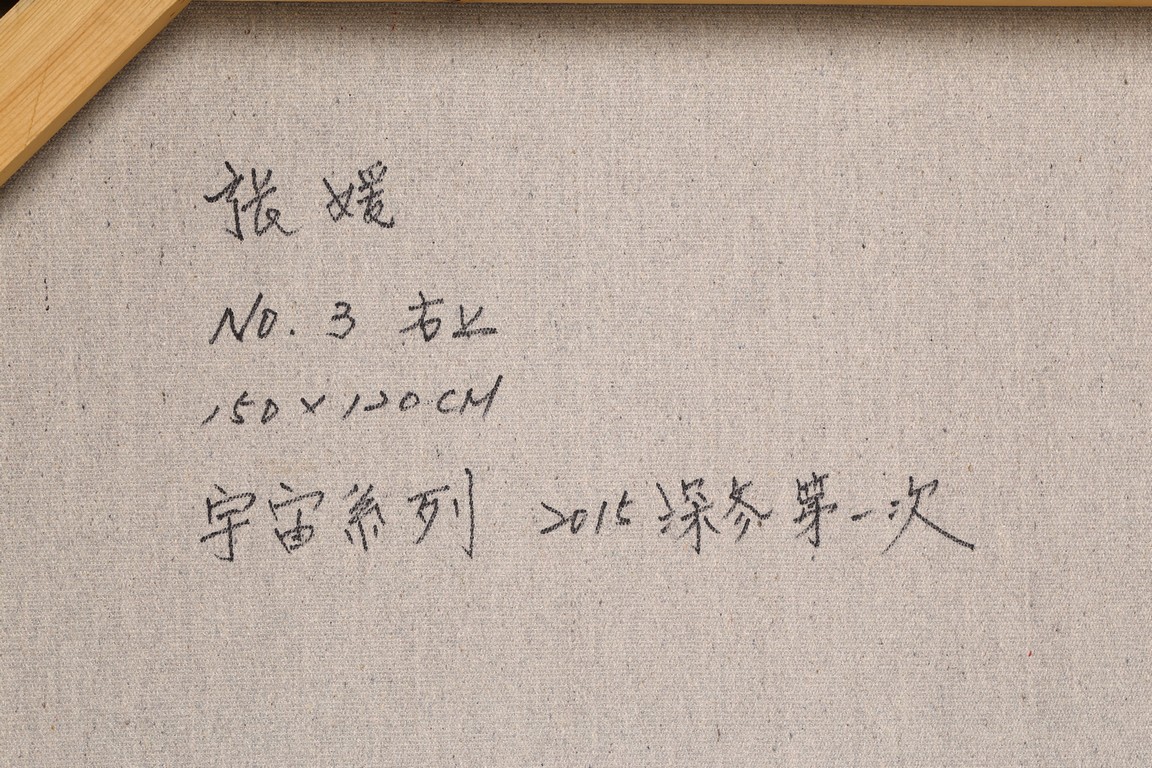 张 媛
No. 3 右上
150 x 120 CM
宇宙系列 2015 深参第一次